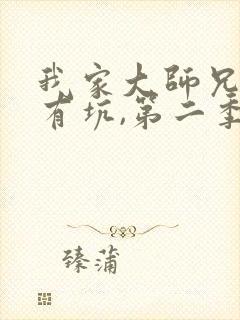 我家大师兄
有坑,第二季
臻蒲